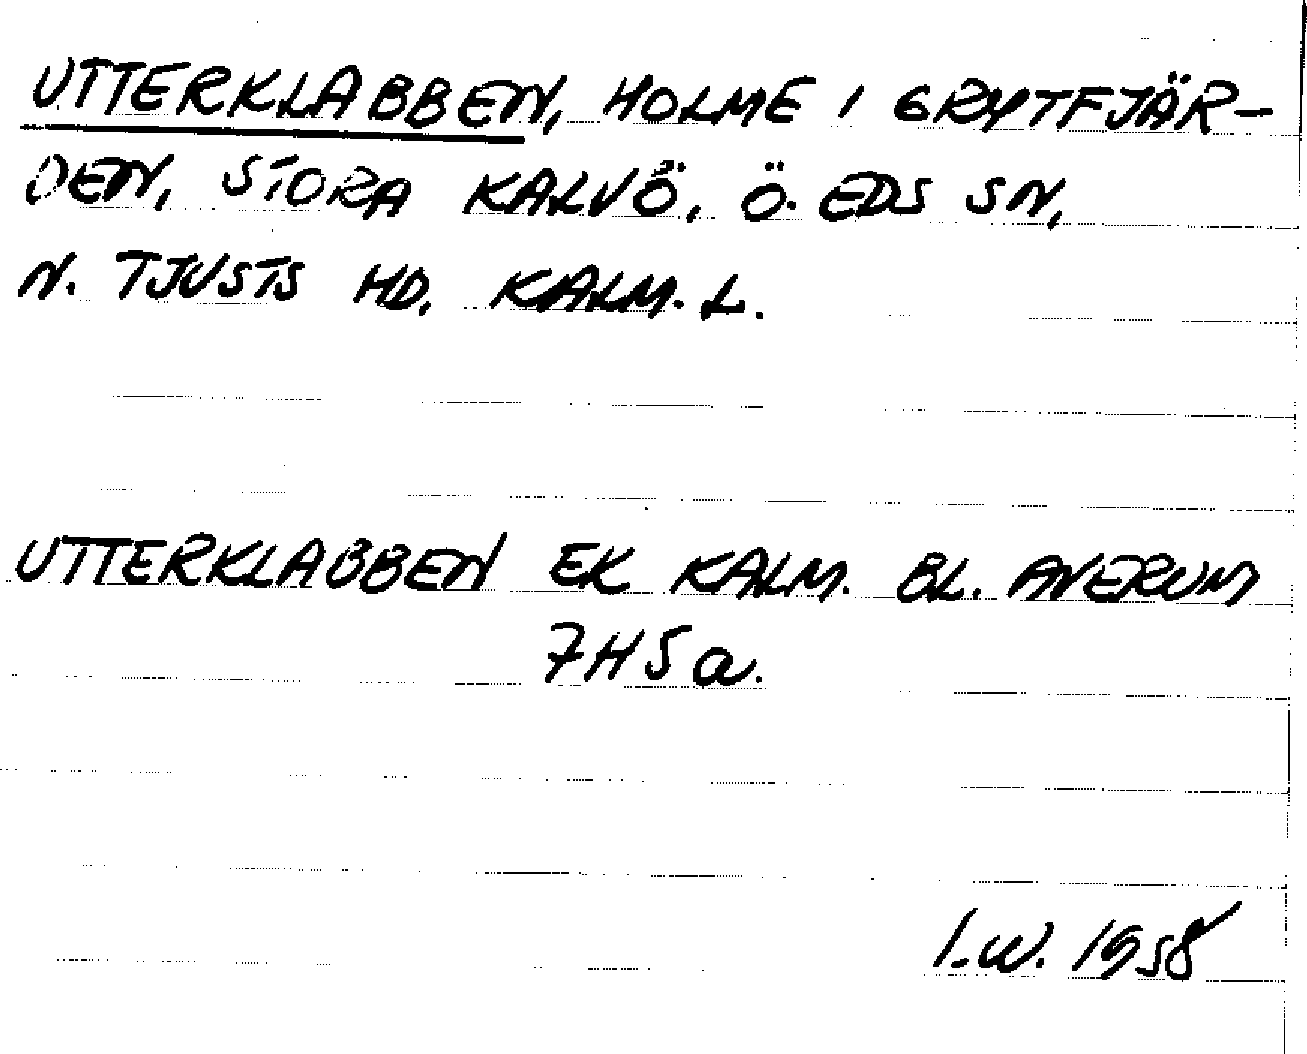 UTTERKLABBEN, HOLME I GRYTFJÄR-
DEN, STORA KALVÖ, Ö. EDS SN,
N. TJUSTS HD. KALM. L.
UTTERKLABBEN EK KALM. BL. ANERUM
7H5a.
I.W. 1958